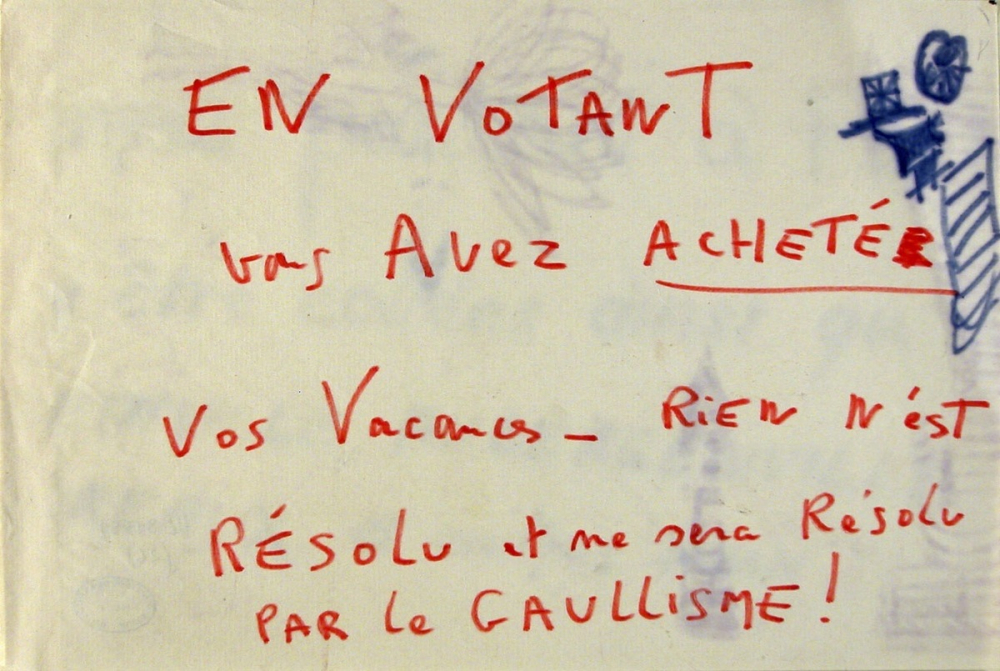 EN VOTANT
vous Avez ACHETÉ
Vos Vacances – RiEN N'ésT
RÉSOLU et ne sera Résolu
PAR Le GAULLiSME !